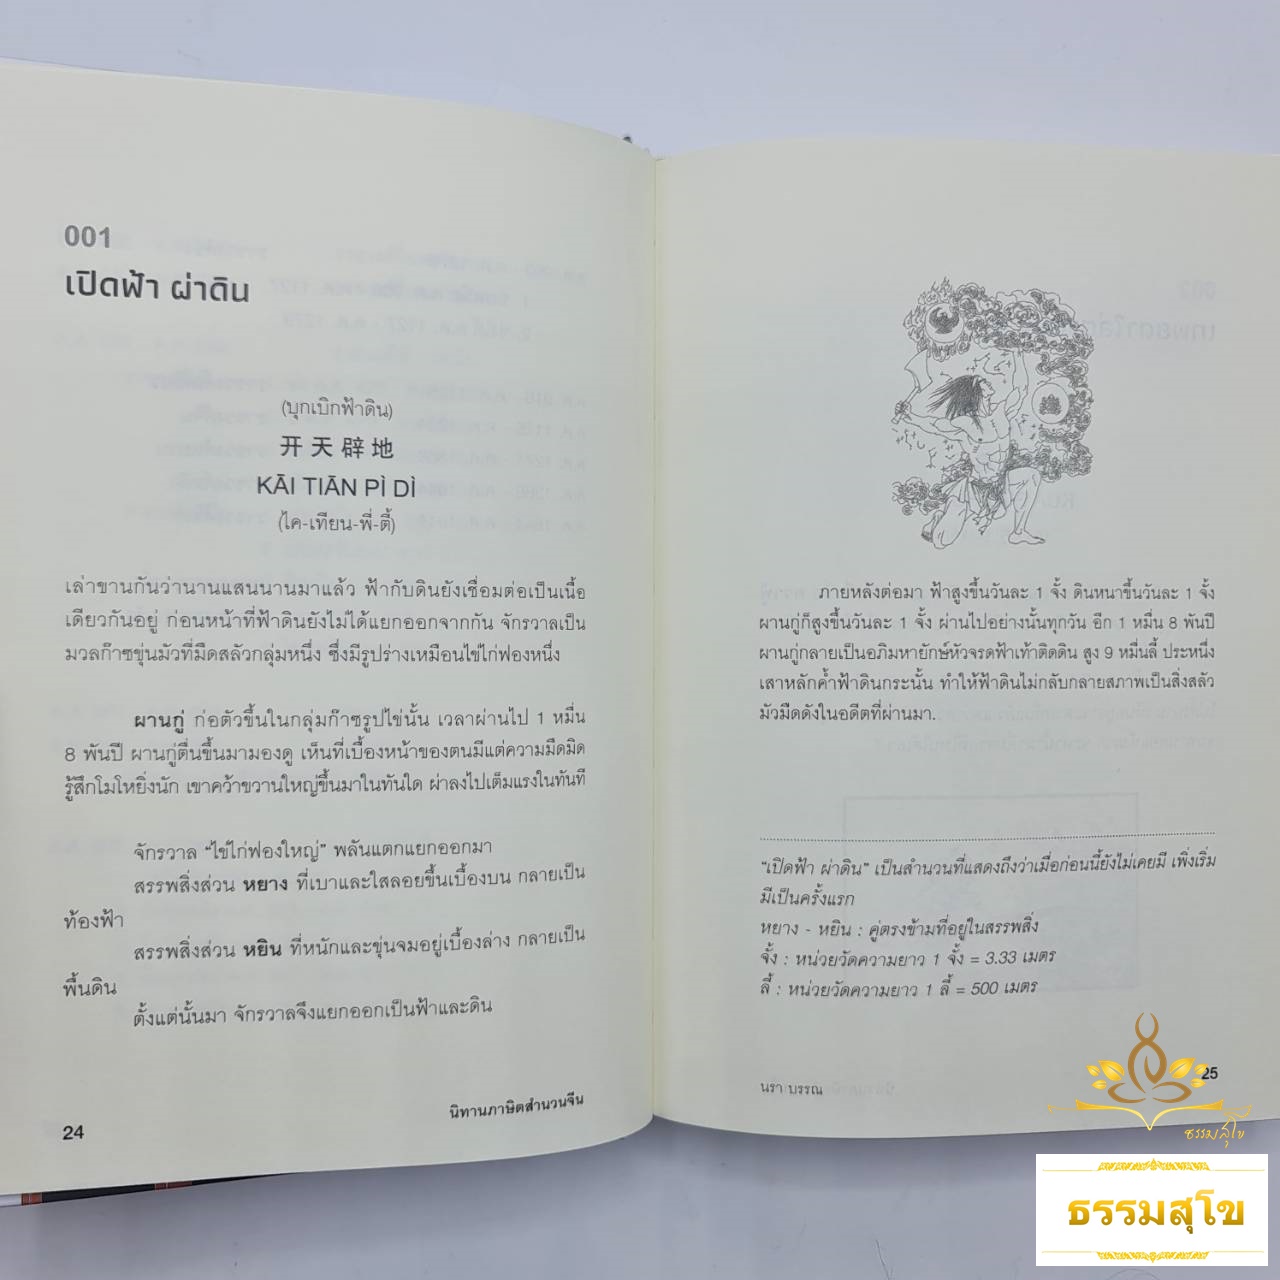 001
เปิดฟ้า ผ่าดิน
(บุกเบิกฟ้าดิน)
开天辟地
KĀI TIĀN PÌ DÌ
(ไค-เทียน-พี่-ตี้)
เล่าขานกันว่านานแสนนานมาแล้ว ฟ้ากับดินยังเชื่อมต่อเป็นเนื้อ
เดียวกันอยู่ ก่อนหน้าที่ฟ้าดินยังไม่ได้แยกออกจากกัน จักรวาลเป็น
มวลก๊าซขุ่นมัวที่มืดสลัวกลุ่มหนึ่ง ซึ่งมีรูปร่างเหมือนไข่ไก่ฟองหนึ่ง
ผานกู่ ก่อตัวขึ้นในกลุ่มก๊าซรูปไข่นั้น เวลาผ่านไป 1 หมื่น
8 พันปี ผานกู่ตื่นขึ้นมามองดู เห็นที่เบื้องหน้าของตนมีแต่ความมืดมิด
รู้สึกโมโหยิ่งนัก เขาคว้าขวานใหญ่ขึ้นมาในทันใด ผ่าลงไปเต็มแรงในทันที
จักรวาล “ไข่ไก่ฟองใหญ่” พลันแตกแยกออกมา
สรรพสิ่งส่วน หยาง ที่เบาและใสลอยขึ้นเบื้องบน กลายเป็น
ท้องฟ้า
สรรพสิ่งส่วน หยิน ที่หนักและขุ่นจมอยู่เบื้องล่าง กลายเป็น
พื้นดิน
ตั้งแต่นั้นมา จักรวาลจึงแยกออกเป็นฟ้าและดิน
นิทานภาษิตสำนวนจีน
24
ภายหลังต่อมา ฟ้าสูงขึ้นวันละ 1 จั้ง ดินหนาขึ้นวันละ 1 จั้ง
ผานกู่ก็สูงขึ้นวันละ 1 จั้ง ผ่านไปอย่างนั้นทุกวัน อีก 1 หมื่น 8 พันปี
ผานกู่กลายเป็นอภิมหายักษ์หัวจรดฟ้าเท้าติดดิน สูง 9 หมื่นลี้ ประหนึ่ง
เสาหลักค้ำฟ้าดินกระนั้น ทำให้ฟ้าดินไม่กลับกลายสภาพเป็นสิ่งสลัว
มัวมืดดังในอดีตที่ผ่านมา.
“เปิดฟ้า ผ่าดิน” เป็นสำนวนที่แสดงถึงว่าเมื่อก่อนนี้ยังไม่เคยมี เพิ่งเริ่ม
มีเป็นครั้งแรก
หยาง - หยิน : คู่ตรงข้ามที่อยู่ในสรรพสิ่ง
จั้ง : หน่วยวัดความยาว 1 จั้ง = 3.33 เมตร
ลี้ : หน่วยวัดความยาว 1 ลี้ = 500 เมตร
นรา บรรณ
25
ธรรมสุโข
ธรรมสุโข